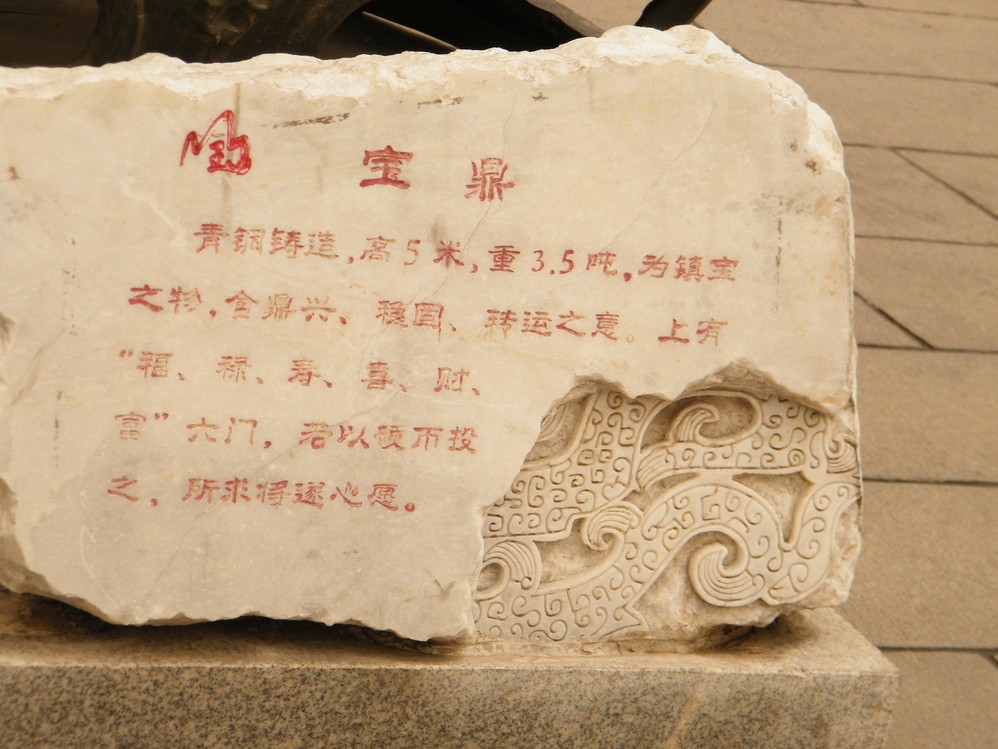 宝鼎
青铜铸造,高5米,重3.5吨,为镇宝
之物,含鼎兴、稳固、转运之意。上有
“福、禄、寿、喜、财、
富”六门,若以硬币投
之,所求将遂心愿。